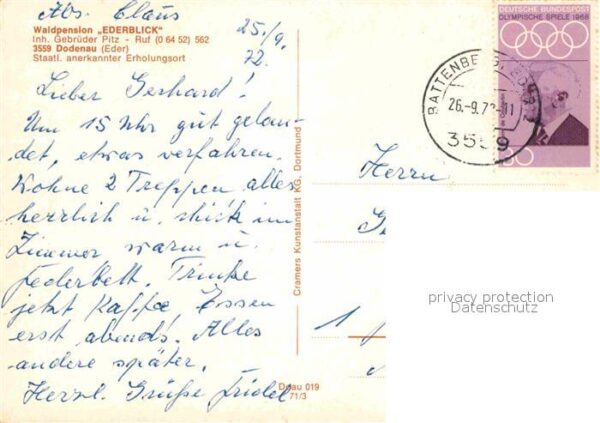 Abs. Claus
25./9.
72.
Waldpension „EDERBLICK"
Inh. Gebrüder Pitz - Ruf (0 64 52) 562
3559 Dodenau (Eder)
Staatl. anerkannter Erholungsort
Lieber Gerhard!
Um 15 Uhr gut gelan-
det, etwas verfahren.
Wohne 2 Treppen, alles
herrlich u. schick im
Zimmer, warm u.
Federbett. Trinke
jetzt Kaffee, Essen
erst abends. Alles
andere später.
Herzl. Grüße Friedel
Cramers Kunstanstalt KG, Dortmund
Dodau 019
71/3
DEUTSCHE BUNDESPOST
OLYMPISCHE SPIELE 1968
30
BATTENBERG
26.-9.72-11
3559
Herrn
1
privacy protection
Datenschutz